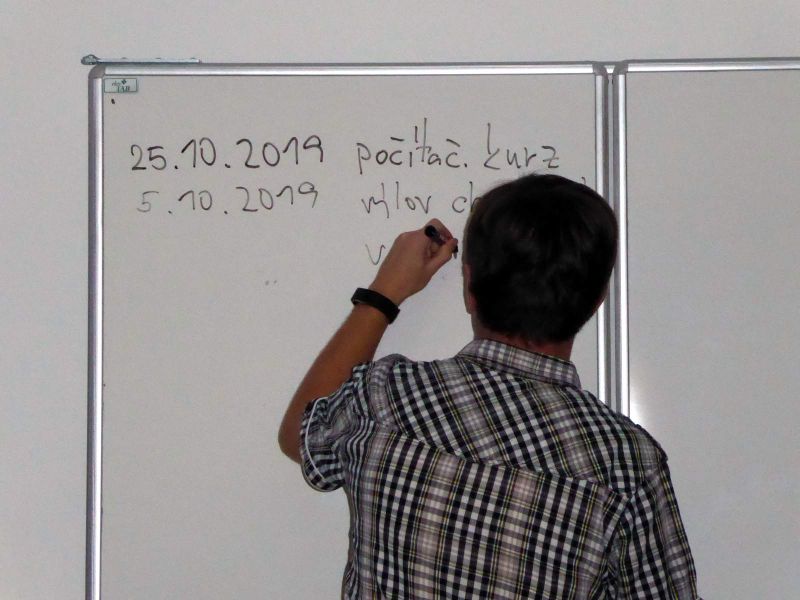 25.10.2019 počítač. kurz
5.10.2019 výlov